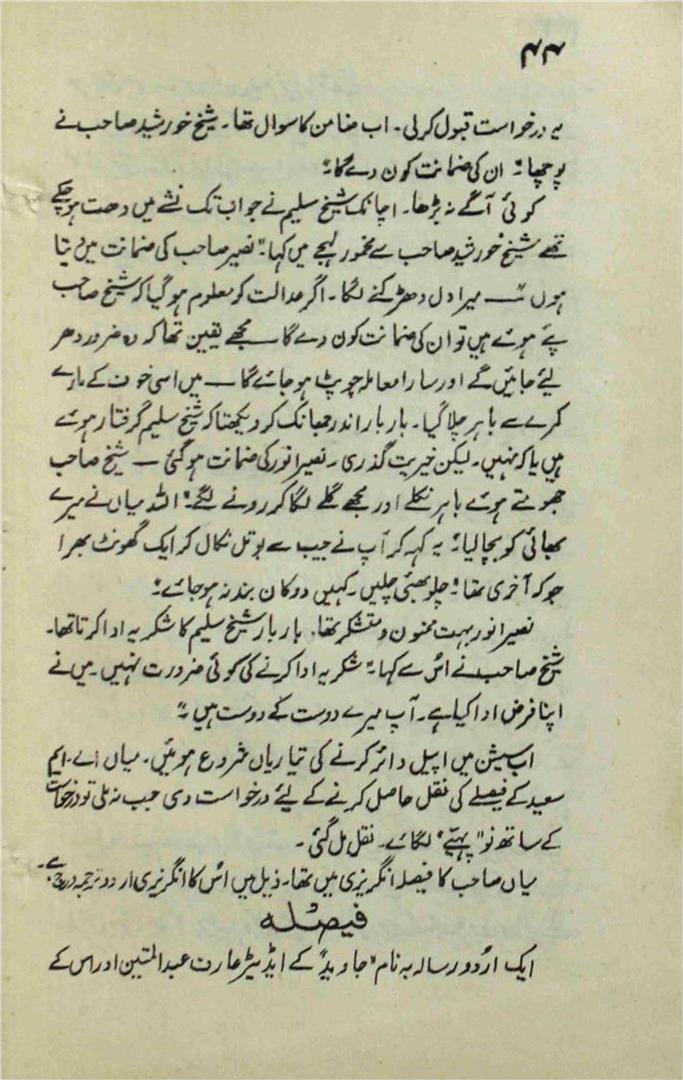 ۴۴
یہ درخواست قبول کرلی۔ اب ضامن کا سوال تھا۔ شیخ خورشید صاحب نے
پوچھا: "ان کی ضمانت کون دے گا؟"
کوئی آگے نہ بڑھا۔ اچانک شیخ سلیم نے جو اب تک نشے میں دھت ہو چکے
تھے شیخ خورشید صاحب سے مخمور لہجے میں کہا۔ "نصیر صاحب کی ضمانت میں دیتا
ہوں" ــــ میرا دل دھڑکنے لگا۔ اگر عدالت کو معلوم ہو گیا کہ شیخ صاحب
پئے ہوئے ہیں تو ان کی ضمانت کون دے گا ــــ مجھے یقین تھا کہ وہ ضرور دھر
لئے جائیں گے اور سارا معاملہ چوپٹ ہو جائے گا ــــ میں اسی خوف کے مارے
کمرے سے باہر چلا گیا۔ بار بار اندر جھانک کر دیکھتا کہ شیخ سلیم گرفتار ہوئے
ہیں یا کہ نہیں۔ لیکن خیریت گذری۔ نصیر انور کی ضمانت ہو گئی ــــ شیخ صاحب
جھومتے ہوئے باہر نکلے اور مجھے گلے لگا کر رونے لگے: "اللہ میاں نے میرے
بھائی کو بچا لیا" یہ کہہ کر آپ نے جیب سے بوتل نکال کر ایک گھونٹ بھرا
جو کہ آخری تھا۔ "چلو بھئی چلیں۔ کہیں دوکان بند نہ ہو جائے۔"
نصیر انور بہت ممنون و متشکر تھا۔ بار بار شیخ سلیم کا شکریہ ادا کرتا تھا۔
شیخ صاحب نے اس سے کہا۔ "شکریہ ادا کرنے کی کوئی ضرورت نہیں۔ میں نے
اپنا فرض ادا کیا ہے۔ آپ میرے دوست کے دوست ہیں۔"
اب سیشن میں اپیل دائر کرنے کی تیاریاں شروع ہوئیں۔ میاں اے۔ ایم
سعید کے فیصلے کی نقل حاصل کرنے کے لیے درخواست دی جب نہ ملی تو درخواست
کے ساتھ نو "پہیّے" لگائے۔ نقل مل گئی۔
میاں صاحب کا فیصلہ انگریزی میں تھا۔ ذیل میں اس کا انگریزی اردو ترجمہ درج ہے۔
فیصلہ
ایک اردو رسالہ بہ نام "جاوید" کے ایڈیٹر عارف عبدالمتین اور اس کے